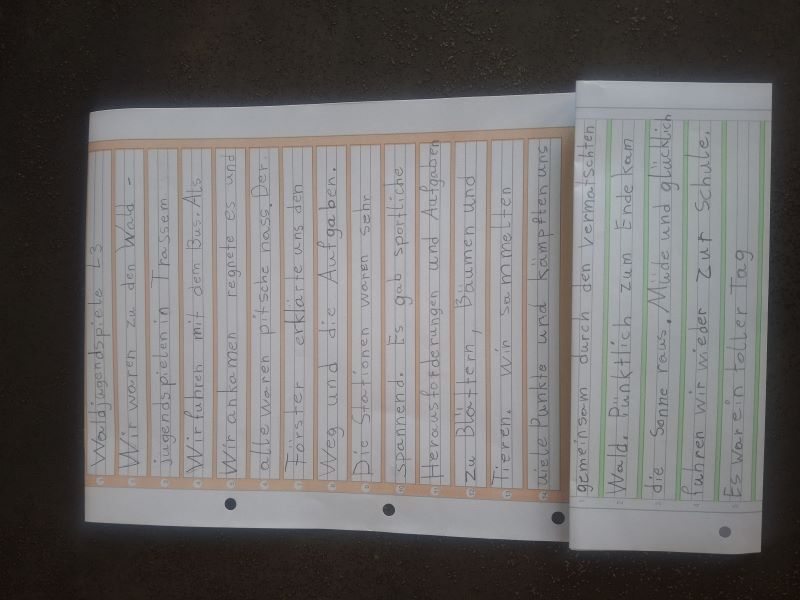 Waldjugendspiele L3
Wir waren zu den Wald -
jugendspielen in Trassem
Wir fuhren mit dem Bus. Als
Wir ankamen regnete es und
alle waren pitsche nass. Der
Förster erklärte uns den
Weg und die Aufgaben.
Die Stationen waren sehr
spannend. Es gab sportliche
Herausforderungen und Aufgaben
zu Blättern, Bäumen und
Tieren. Wir sammelten
viele Punkte und kämpften uns
gemeinsam durch den vermatschten
Wald. Pünktlich zum Ende kam
die Sonne raus. Müde und glücklich
fuhren wir wieder zur Schule.
Es war ein toller Tag